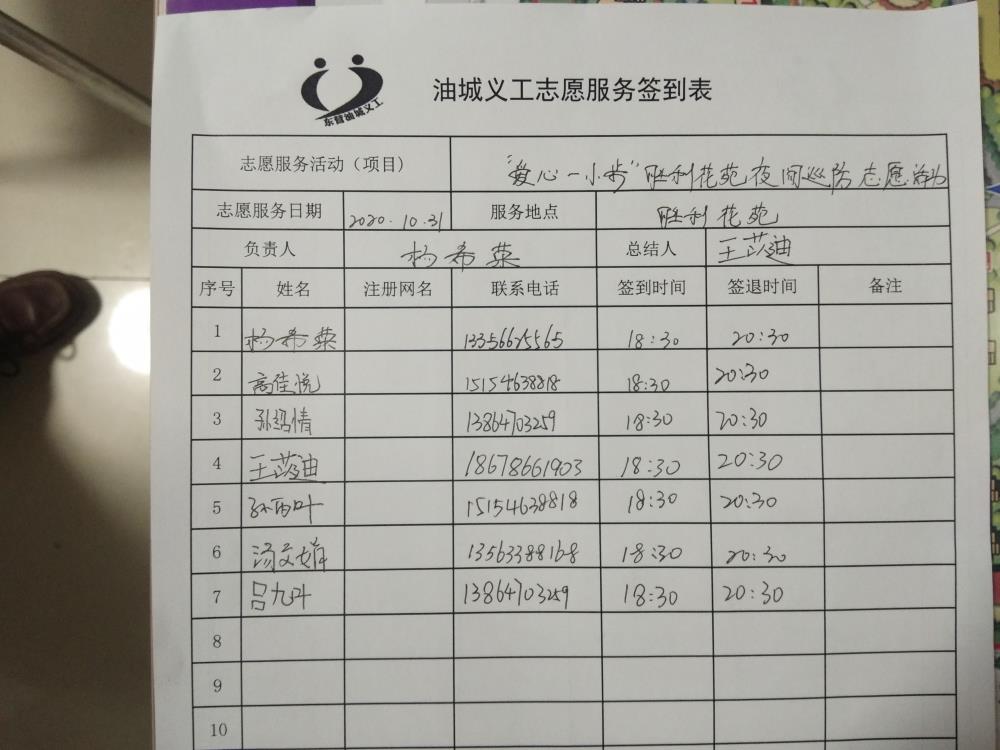 东营油城义工
油城义工志愿服务签到表
志愿服务活动（项目） “爱心一小步”胜利花苑夜间巡防志愿活动
志愿服务日期 2020.10.31 服务地点 胜利花苑
负责人 杨希蕖 总结人 王苡迪
序号 姓名 注册网名 联系电话 签到时间 签退时间 备注
1 杨希蕖 13356675565 18:30 20:30
2 高佳悦 15154638818 18:30 20:30
3 13864703259 18:30 20:30
4 王苡迪 18678661903 18:30 20:30
5 15154638818 18:30 20:30
6 汤文娟 13563388168 18:30 20:30
7 吕九叶 13864703259 18:30 20:30
8
9
10